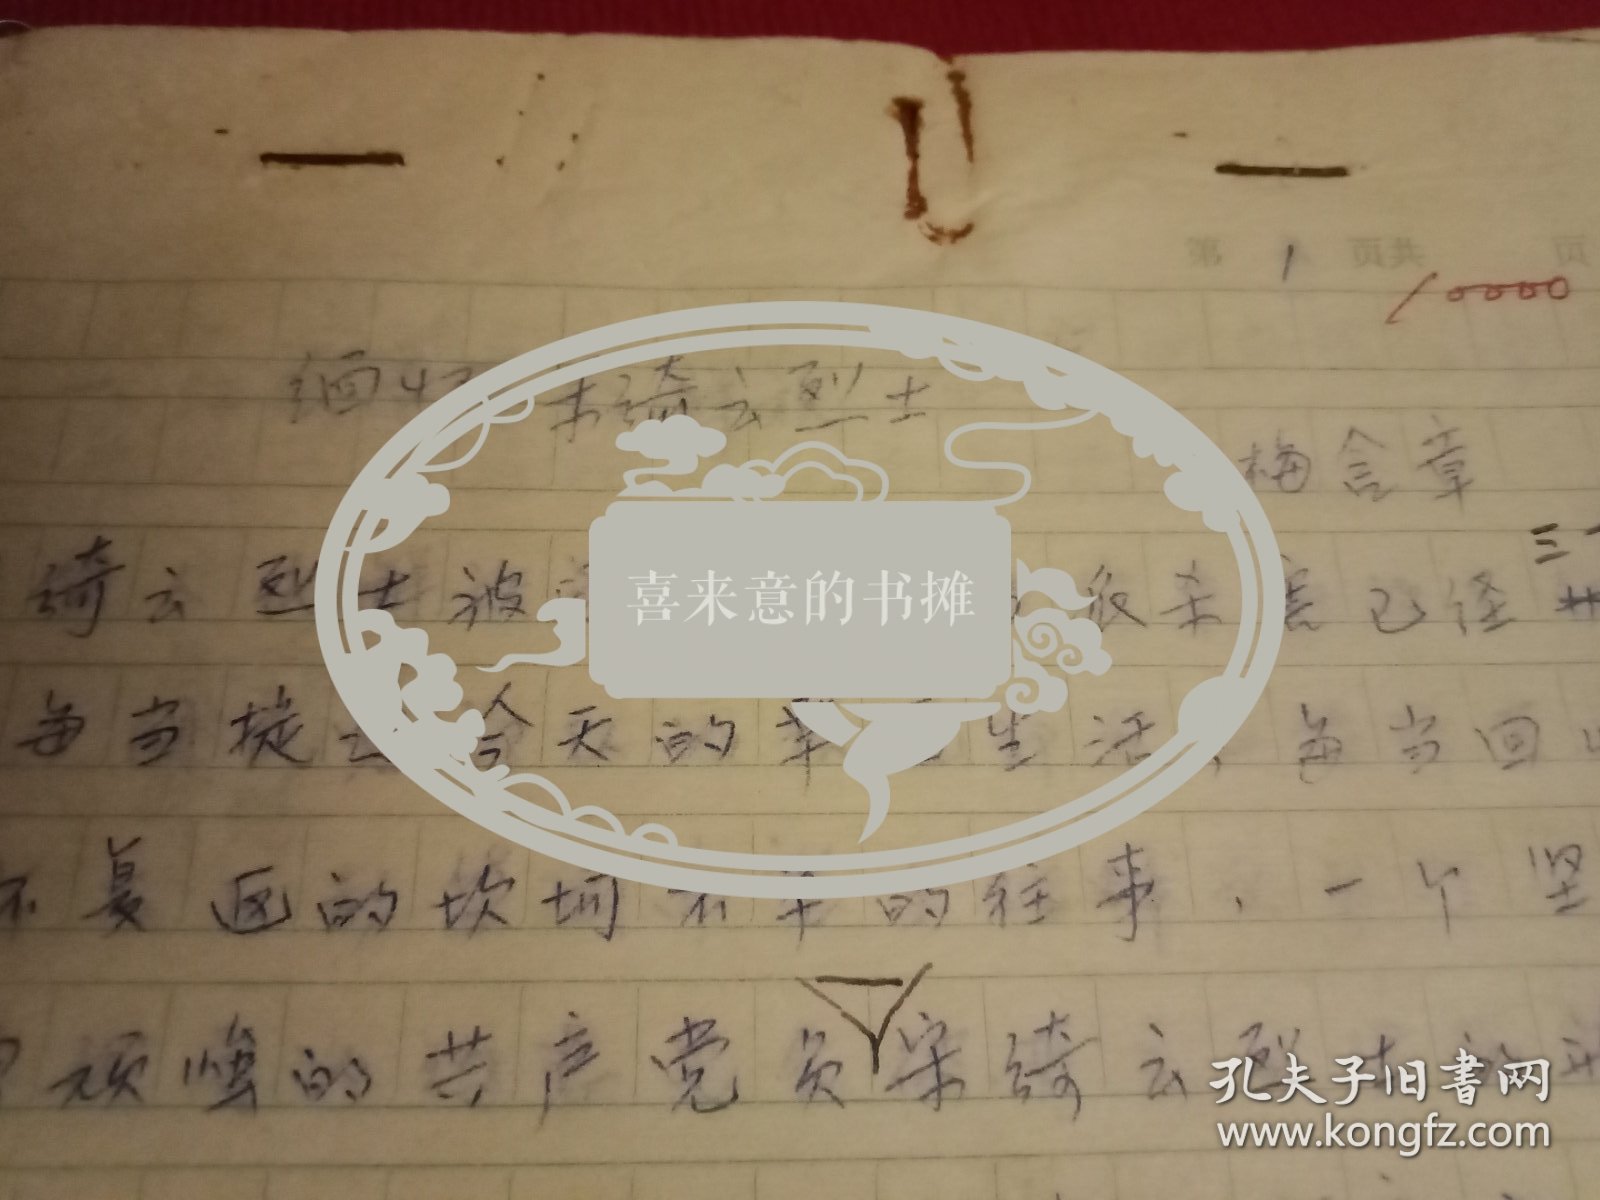 第 1 页 共 页
10000
缅 宋绮云烈士
梅含章
绮云烈士被 杀害已经
每当提 今天的幸 生活、每当回
不复返的坎坷不平的往事，一个坚
顽强的共产党员宋绮云烈士的
喜来意的书摊
孔夫子旧书网
www.kongfz.com